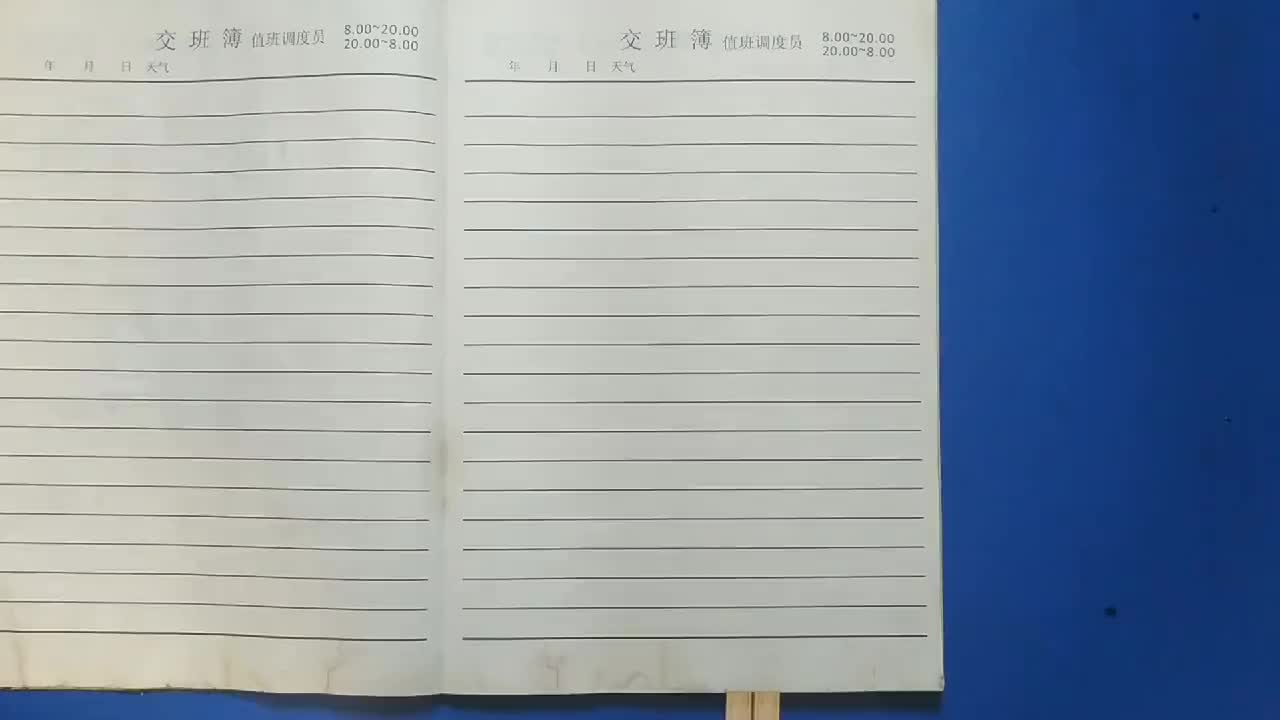 交班簿 值班调度员 8.00~20.00
20.00~8.00
年 月 日 天气
交班簿 值班调度员 8.00~20.00
20.00~8.00
年 月 日 天气